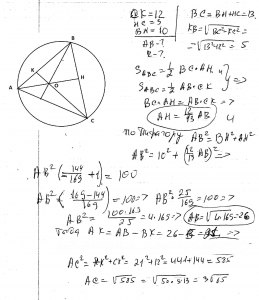 CK=12
HC=3
BH=10
AB-?
R-?
BC=BH+HC=13.
KB=√BC²-KC²=
=√13²-12²=5
B
K
H
O
A
C
S_ABC=½ BC·AH,
S_ABC=½ AB·CK
=>
BC·AH=AB·CK=>
AH=12/13 AB
по Пифагору AB²=BH²+AH²
AB²=10²+(12/13 AB)²=>
AB²(-144/169+1)=100
AB²(169-144/169)=100=>AB²·25/169=100=>
AB²=100·169/25=4·169=>AB=√4·169=26
Тогда AK=AB-BK=26-5=21=>
AC²=AK²+CK²=21²+12²=441+144=585
AC=√585=√5·9·13=3√65